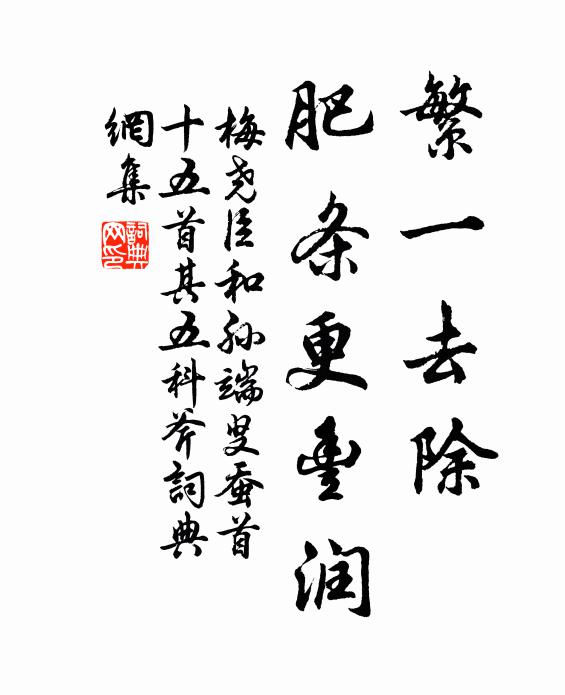 繁一去除
肥条更豐润
梅尧臣和孙端叟蚕首
十五首其五科斧詞典
網集
詞典
网印